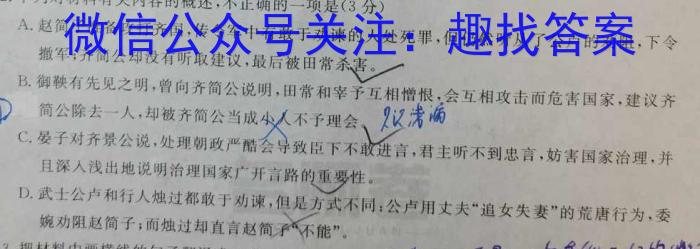 下列对材料有关内容的概述,不正确的一项是(3分)
微信公众号关注:趣找答案
A. 赵简 齐国, 敢于劝谏的人处死罪, 下令
撤军;齐简公却没有听取建议,最后被田常杀害。
B. 御鞅有先见之明,曾向齐简公说明,田常和宰予互相憎恨,会互相攻击而危害国家,建议齐
简公除去一人,却被齐简公当成小人不予理会。
C. 晏子对齐景公说,处理朝政严酷会导致臣下不敢进言,君主听不到忠言,妨害国家治理,并
且深入浅出地说明治理国家广开言路的重要性。
D. 武士公卢和行人烛过都敢于劝谏,但是方式不同;公卢用丈夫“追女失妻”的荒唐行为,委
婉劝阻赵简子;而烛过却直言赵简子“不能”。